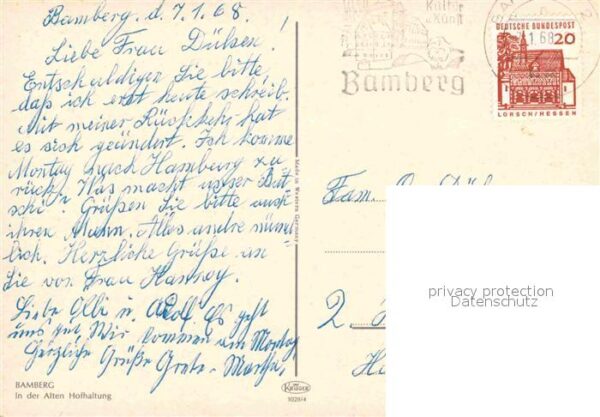 Bamberg. d. 7.1.68.
Liebe Frau Dülsen!
Entschuldigen Sie bitte,
daß ich erst heute schreib.
Mit meiner Rückkehr hat
es sich geändert. Ich komme
Montag nach Hamburg zu
rück. Was macht unser
Grüßen Sie bitte auch
ihren Mann. Alles andre münd
lich. Herzliche Grüße an
Sie von Frau
Liebe u. Es geht
uns gut. Wir kommen am Montag
Herzliche Grüße Grete - Martha.
BAMBERG
In der Alten Hofhaltung
Kultur
u Kunst
Bamberg
1.68
DEUTSCHE BUNDESPOST
20
LORSCH/HESSEN
Made in Western Germany
Krüger
Fam.
2
privacy protection
Datenschutz